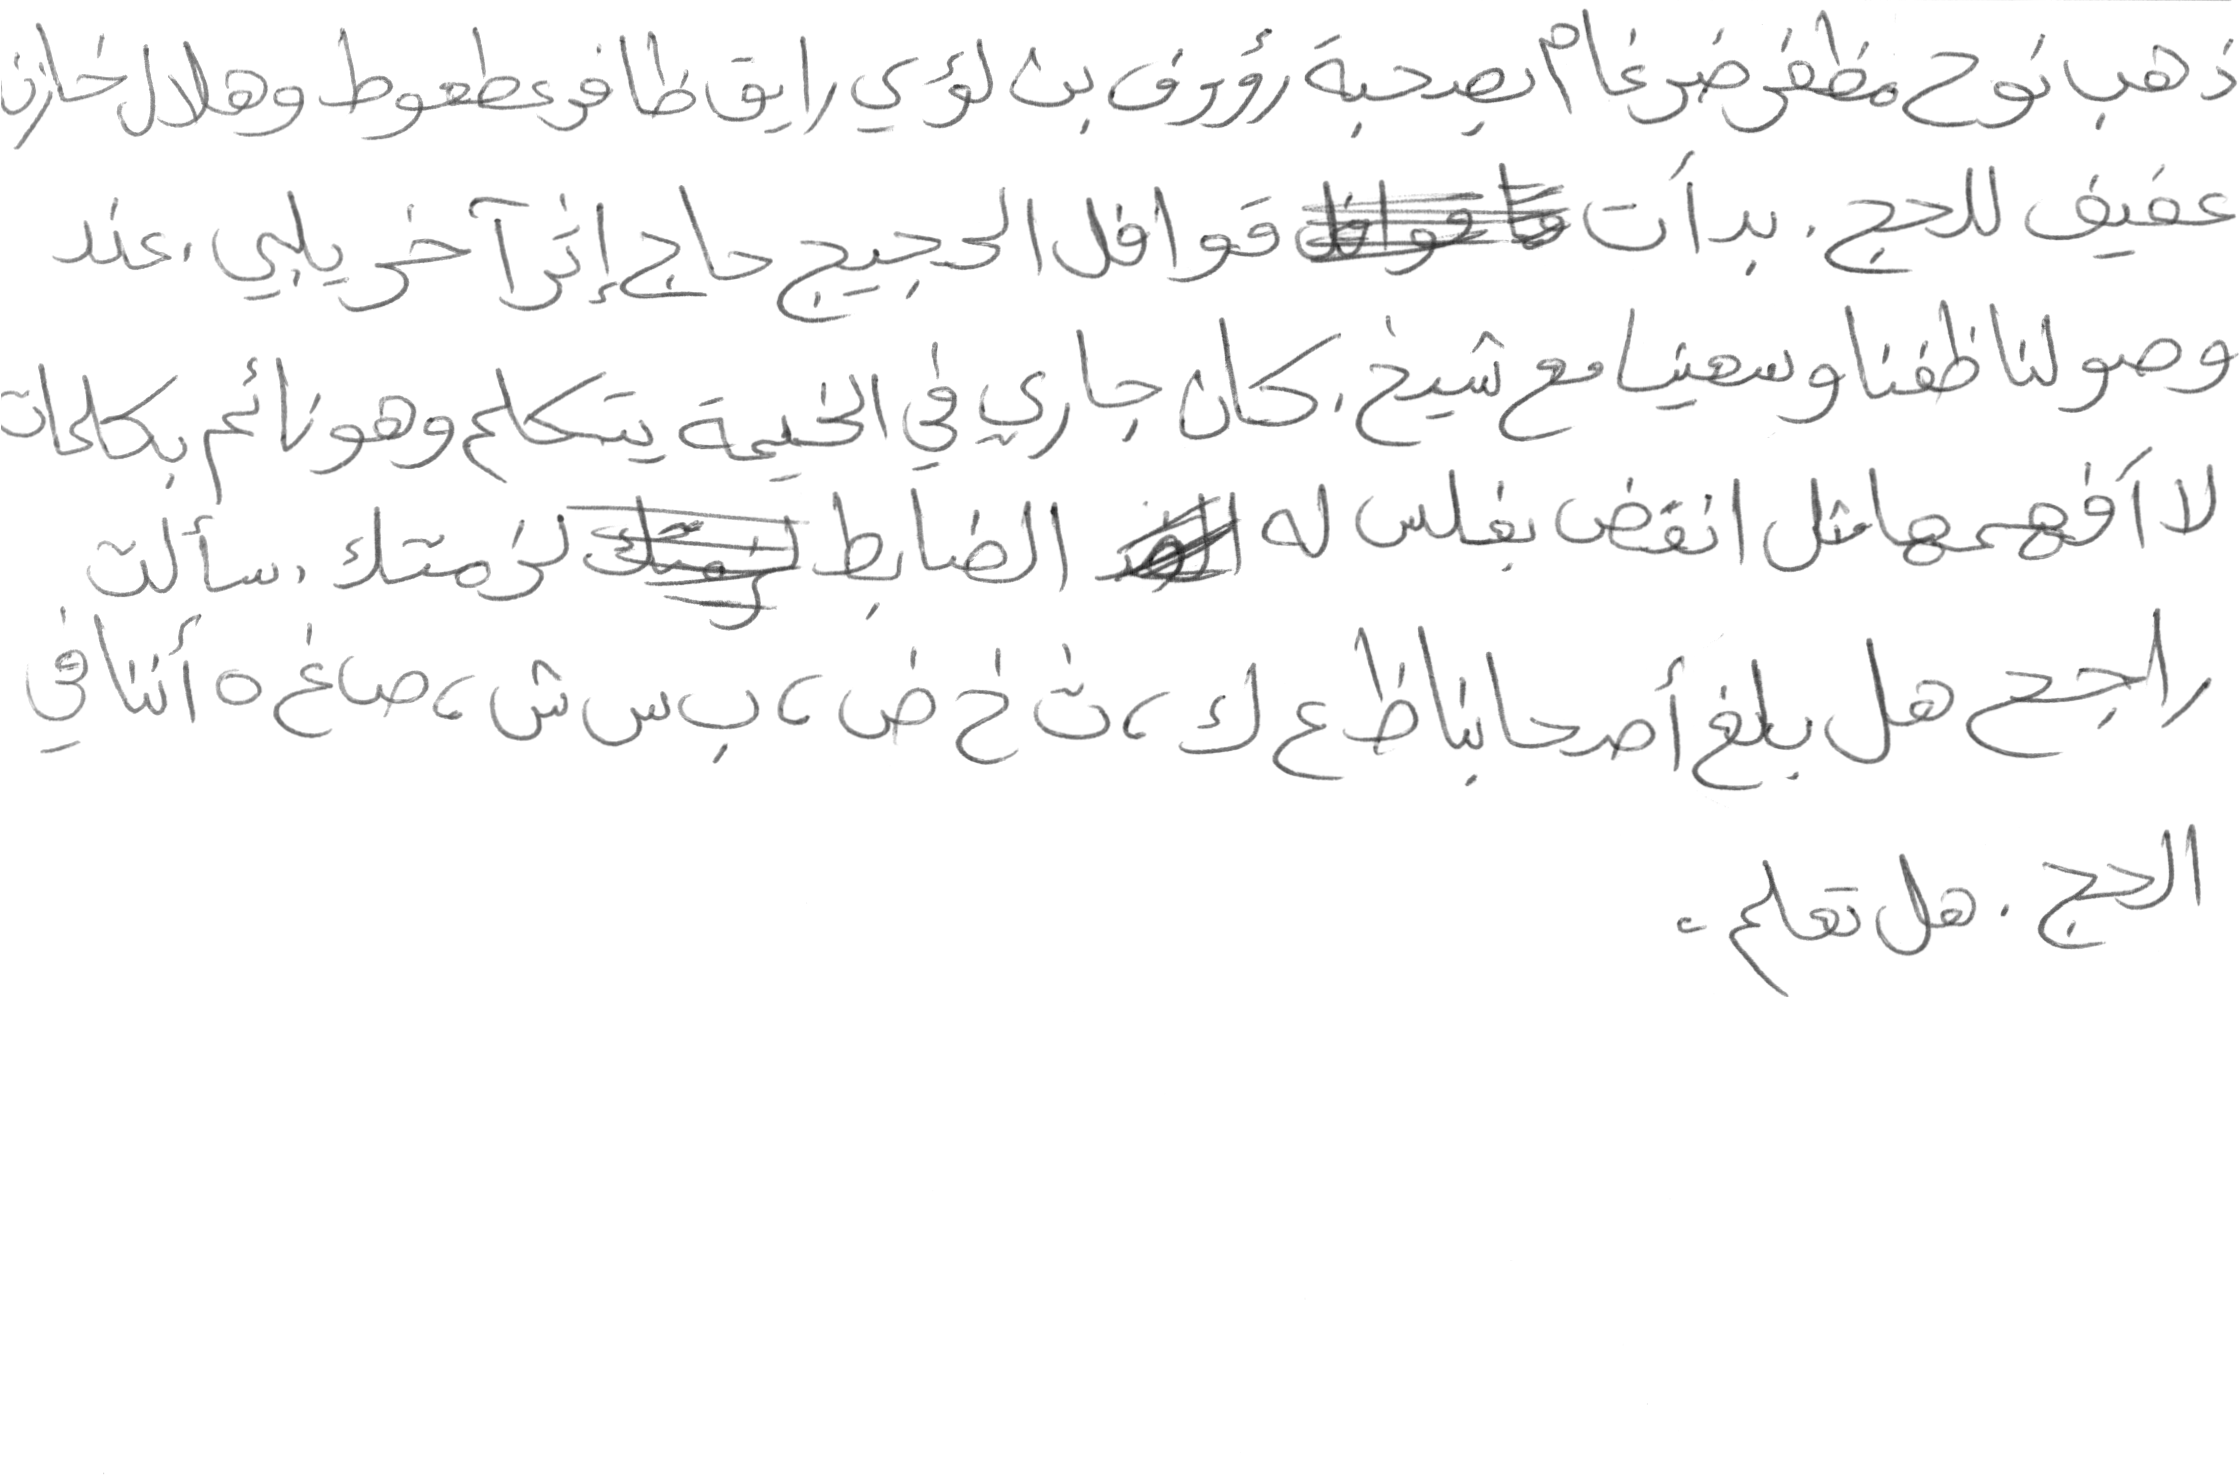 ذهب نوح مظفر ضرغام بصحبة رؤوف بن لؤي رايق ظافر عطعوط وهلال خازن
عفيف للحج. بدأت قوافل الحجيج حاج إثر آخر يلبي. عند
وصولنا ظفنا وسهينا مع شيخ. كان جاري في الخيمة يتكلم وهو نائم بكلمات
لا أفهمها مثل انقض بفلس له الضابط لزمتك. سألت
راجح هل بلغ أصحابنا ظ ع ك، ث خ ض، ب س ش، صاغ ه أننا في
الحج. هل تعلم